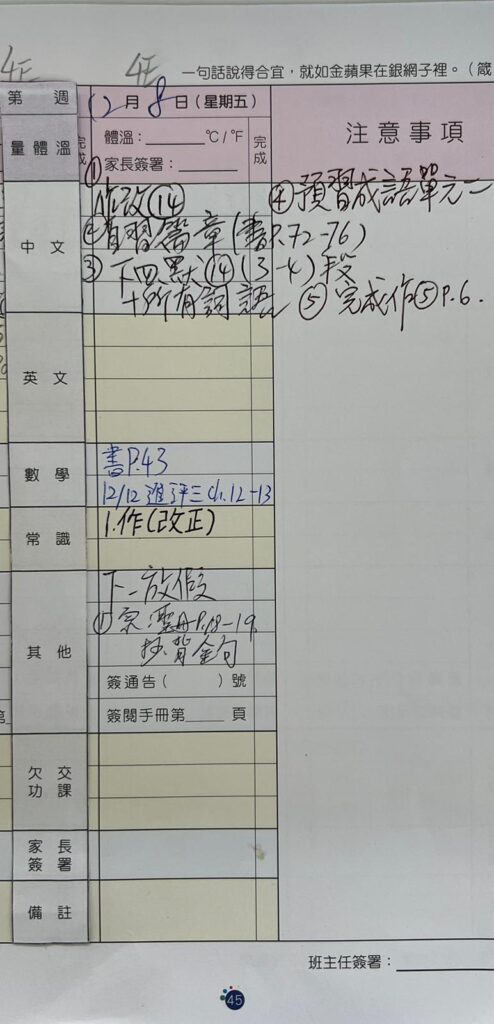 4E 4E
一句話說得合宜，就如金蘋果在銀網子裡。（箴
第 週 12月8日（星期五）
量體溫 完成 體溫：______℃/℉ 完成 注意事項
① 家長簽署：______
中文 作改⑭ ④預習成語單元二
②自習篇章(書P.72-76)
③下四默⑭(3-4)段
+所有詞語 ⑤完成作⑤P.6.
英文
數學 書P.43
12/12 進評三 Ch.12-13
常識 1.作(改正)
其他 下一放假
①宗:靈丹P.18-19
抄背金句
簽通告（　　）號
簽閱手冊第____頁
欠交功課
家長簽署
備註
班主任簽署：______
45